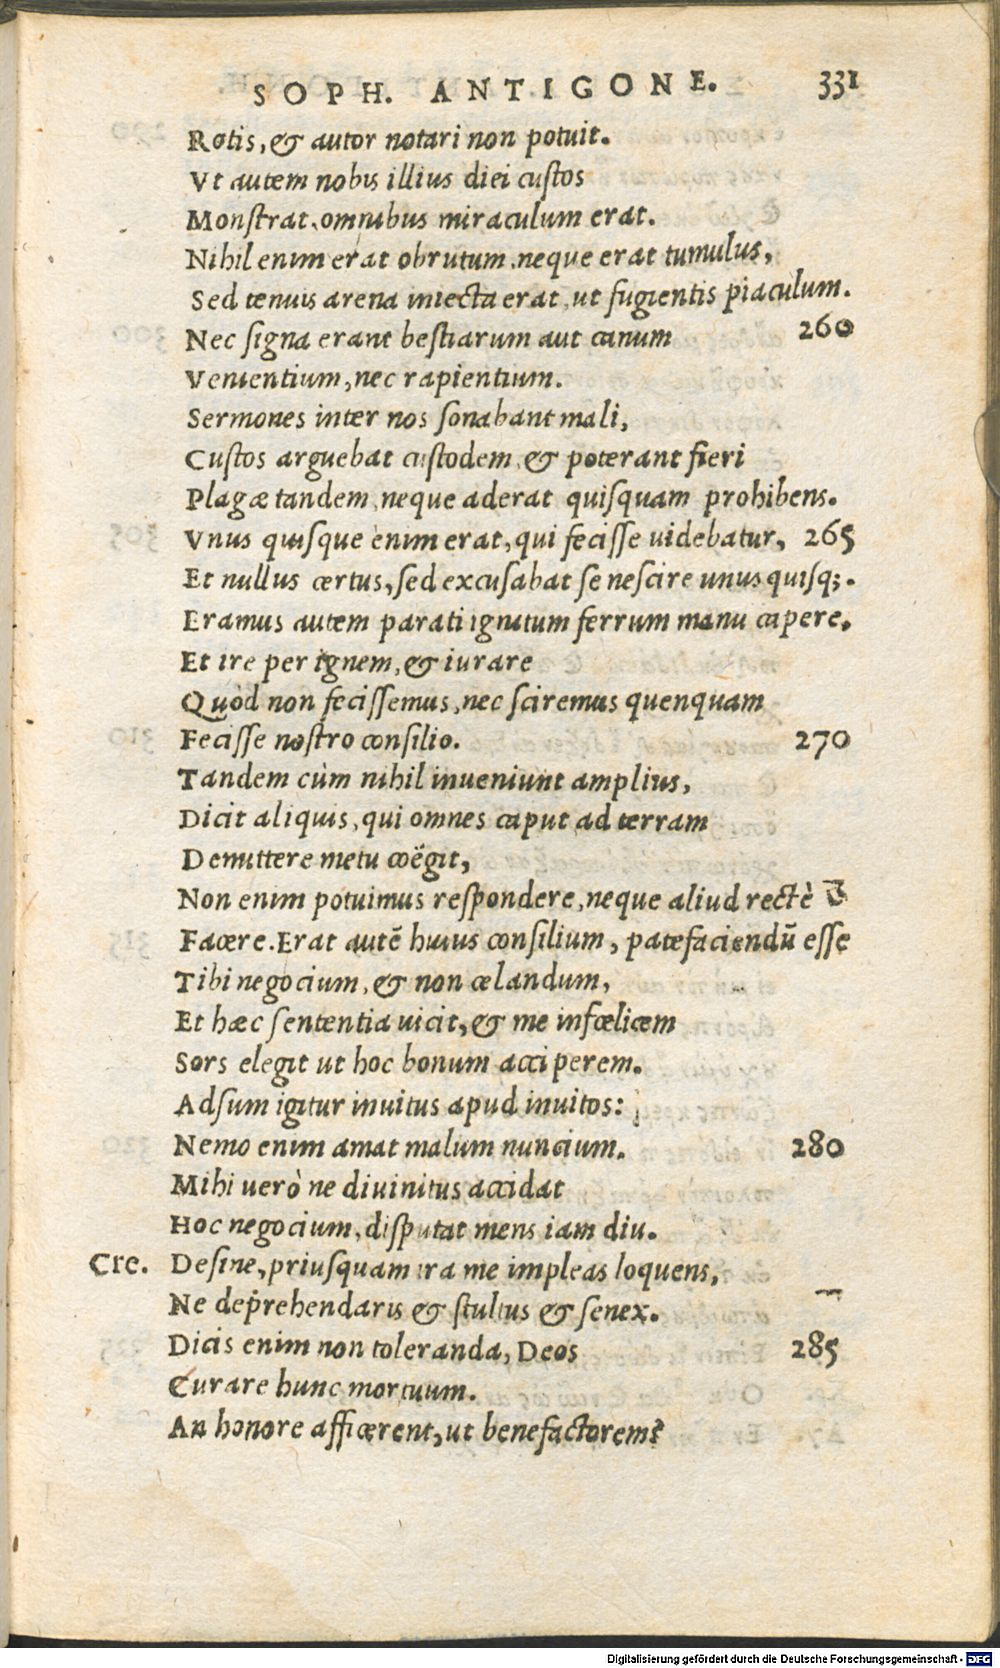 SOPH. ANTIGONE. 331
Rotis, & autor notari non potuit.
Vt autem nobis illius diei custos
Monstrat, omnibus miraculum erat.
Nihil enim erat obrutum, neque erat tumulus,
Sed tenuis arena iniecta erat, ut fugientis piaculum.
Nec signa erant bestiarum aut canum 260
Venientium, nec rapientium.
Sermones inter nos sonabant mali,
Custos arguebat custodem, & poterant fieri
Plagæ tandem, neque aderat quisquam prohibens.
Vnus quisque enim erat, qui fecisse uidebatur, 265
Et nullus certus, sed excusabat se nescire unus quisq;.
Eramus autem parati ignitum ferrum manu capere,
Et ire per ignem, & iurare
Quòd non fecissemus, nec sciremus quenquam
Fecisse nostro consilio. 270
Tandem cùm nihil inueniunt amplius,
Dicit aliquis, qui omnes caput ad terram
Demittere metu coëgit,
Non enim potuimus respondere, neque aliud rectè
Facere. Erat autē huius consilium, patefaciendū esse
Tibi negocium, & non celandum,
Et hæc sententia uicit, & me infœlicem
Sors elegit ut hoc bonum acciperem.
Adsum igitur inuitus apud inuitos:
Nemo enim amat malum nuncium. 280
Mihi uerò ne diuinitus accidat
Hoc negocium, disputat mens iam diu.
Cre. Desine, priusquam ira me impleas loquens,
Ne deprehendaris & stultus & senex.
Dicis enim non toleranda, Deos 285
Curare hunc mortuum.
An honore afficerent, ut benefactorem?
Digitalisierung gefördert durch die Deutsche Forschungsgemeinschaft - DFG